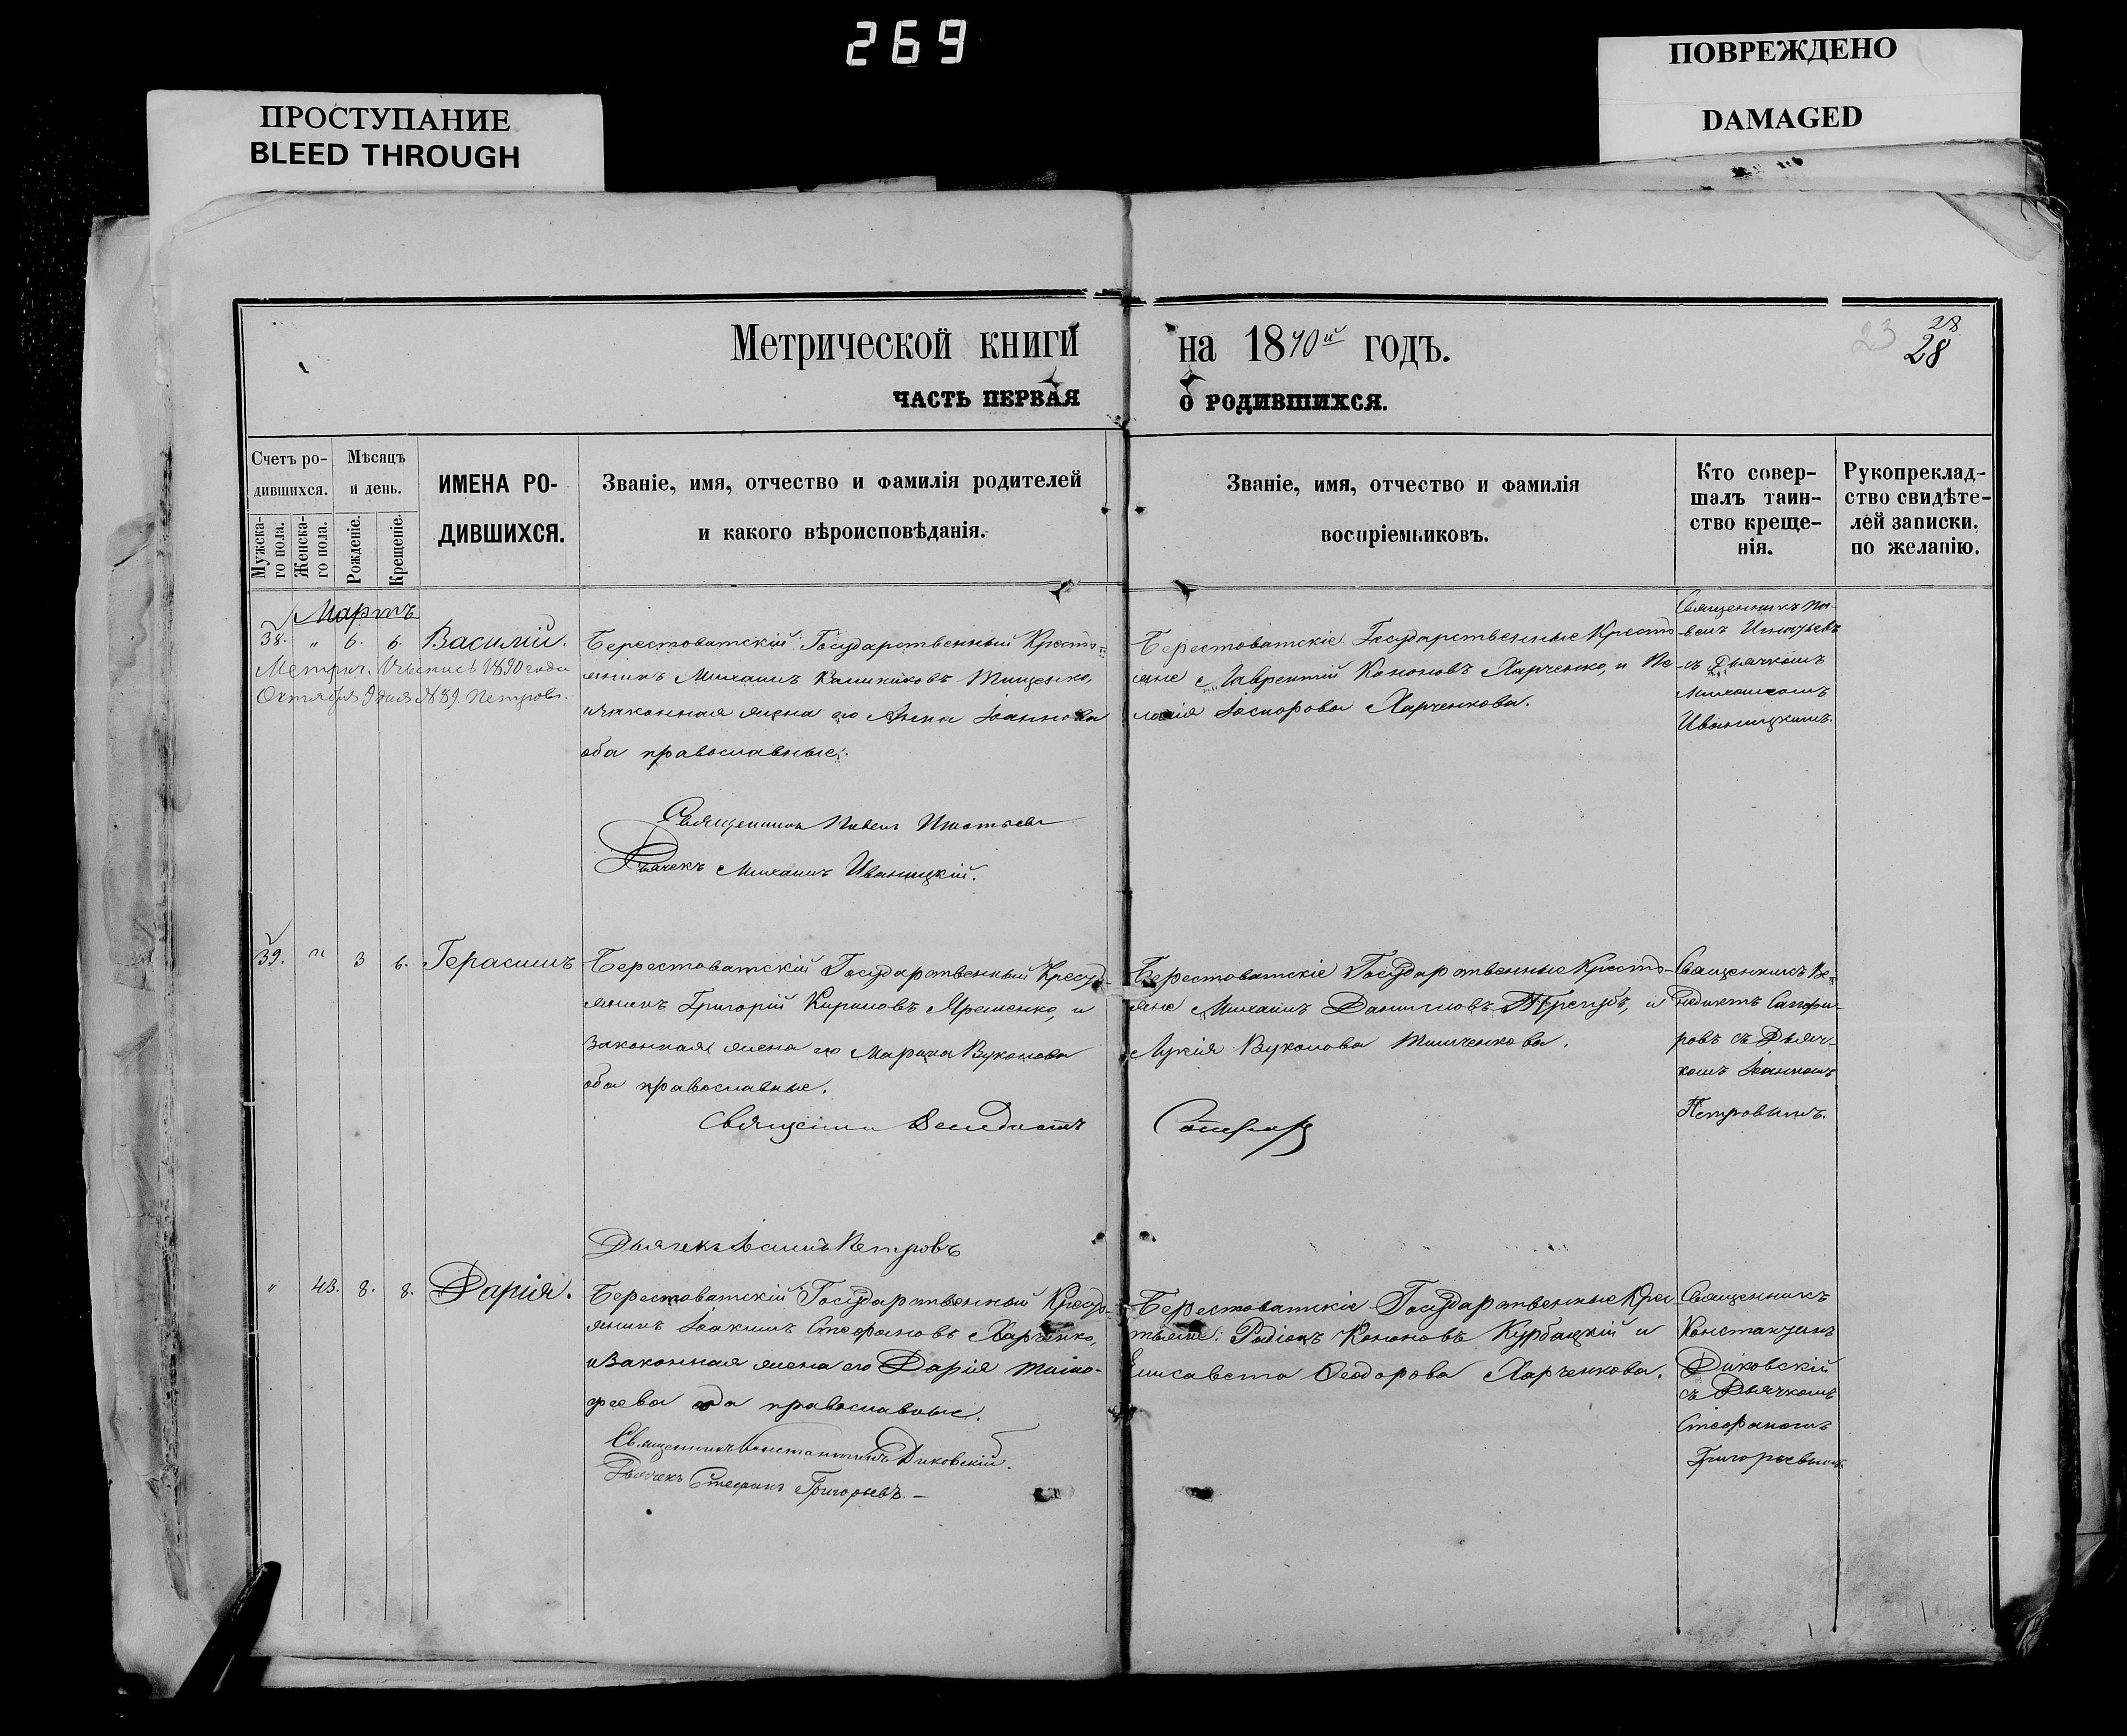 269
ПРОСТУПАНИЕ
BLEED THROUGH
ПОВРЕЖДЕНО
DAMAGED
Метрической книги на 1870й годъ.
ЧАСТЬ ПЕРВАЯ О РОДИВШИХСЯ.
23
28
28
Счетъ ро-
дившихся.
Мужска-
го пола.
Женска-
го пола.
Мѣсяцъ
и день.
Рожденіе.
Крещеніе.
ИМЕНА РО-
ДИВШИХСЯ.
Званіе, имя, отчество и фамилія родителей
и какого вѣроисповѣданія.
Званіе, имя, отчество и фамилія
воспріемниковъ.
Кто совер-
шалъ таин-
ство креще-
нія.
Рукоприклад-
ство свидѣте-
лей записки,
по желанію.
Мартъ
38. " 6. 6. Василій.
Метрич. Выпись 1890 года
Октября 9 дня №89. Петровъ.
Берестоватскій Государственный Кресть-
янинъ Михаилъ Калиниковъ Тищенко,
и законная жена его Анна Іоаннова
оба православные.
Священникъ Павелъ Игнатьевъ
Дьячекъ Михаилъ Иваницкій.
Берестоватскіе Государственные Кресть-
яне Лаврентій Кононовъ Харченко, и Пе-
лагія Харченкова.
Священникъ Па-
велъ Игнатьевъ
съ Дьячкомъ
Михаиломъ
Иваницкимъ.
39. " 3 6. Герасимъ
Берестоватскій Государственный Кресть-
янинъ Григорій Кириловъ Яременко, и
законная жена его Марина Вуколова
оба православные.
Священникъ Венедиктъ
Дьячекъ Іоаннъ Петровъ
Берестоватскіе Государственные Кресть-
яне Михаилъ Даниловъ и
Лукія Вуколова
Священникъ Ве-
недиктъ Сапфи-
ровъ съ Дьяч-
комъ Іоанномъ
Петровымъ.
" 43. 8. 8. Дарія.
Берестоватскій Государственный Кресть-
янинъ Іоакимъ Стефановъ Харченко,
и законная жена его Дарія Тимо-
феева оба православные.
Священникъ Константинъ Диковскій.
Дьячекъ Стефанъ Григорьевъ. –
Берестоватскіе Государственные Крес-
тьяне: Родіонъ Кононовъ Курбацкій и
Елисавета Феодорова Харченкова.
Священникъ
Константинъ
Диковскій
съ Дьячкомъ
Стефаномъ
Григорьевымъ.